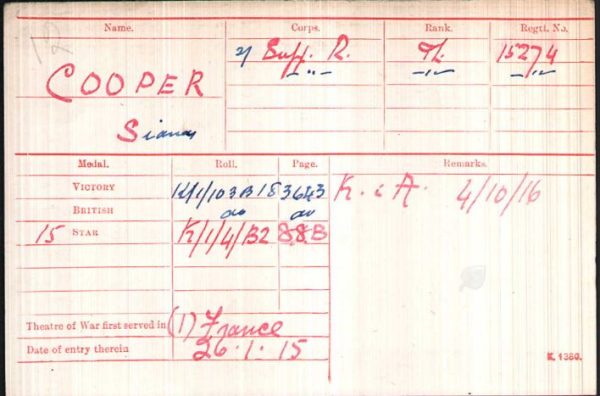 Name. Corps. Rank. Regtl. No.
2/ Suff. R. 15274
COOPER
Medal. Roll. Page. Remarks.
VICTORY K/1/103B18 K. i A. 4/10/16
BRITISH do do
15 STAR K/1/4/B2 88B
Theatre of War first served in (1) France
Date of entry therein 26.1.15
K. 1380.